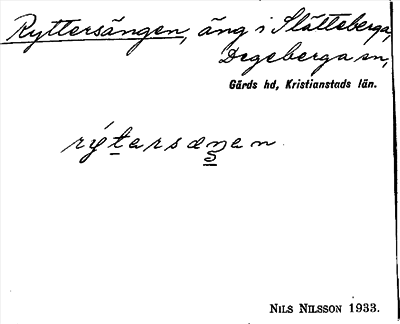 Ryttersängen, äng i Slätteberga,
Degeberga sn,
Gärds hd, Kristianstads län.
rýtersæŋen.
NILS NILSSON 1933.